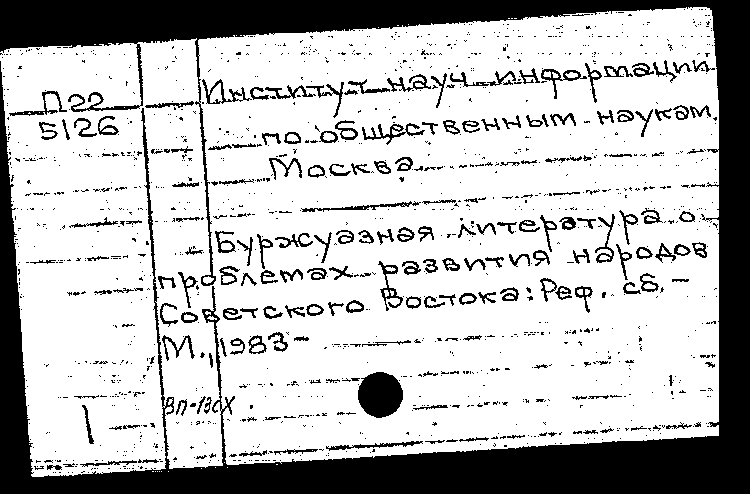 П22
5126
Институт науч. информации
по общественным наукам.
Москва.
Буржуазная литература о
проблемах развития народов
Советского Востока: Реф. сб. –
М., 1983 –